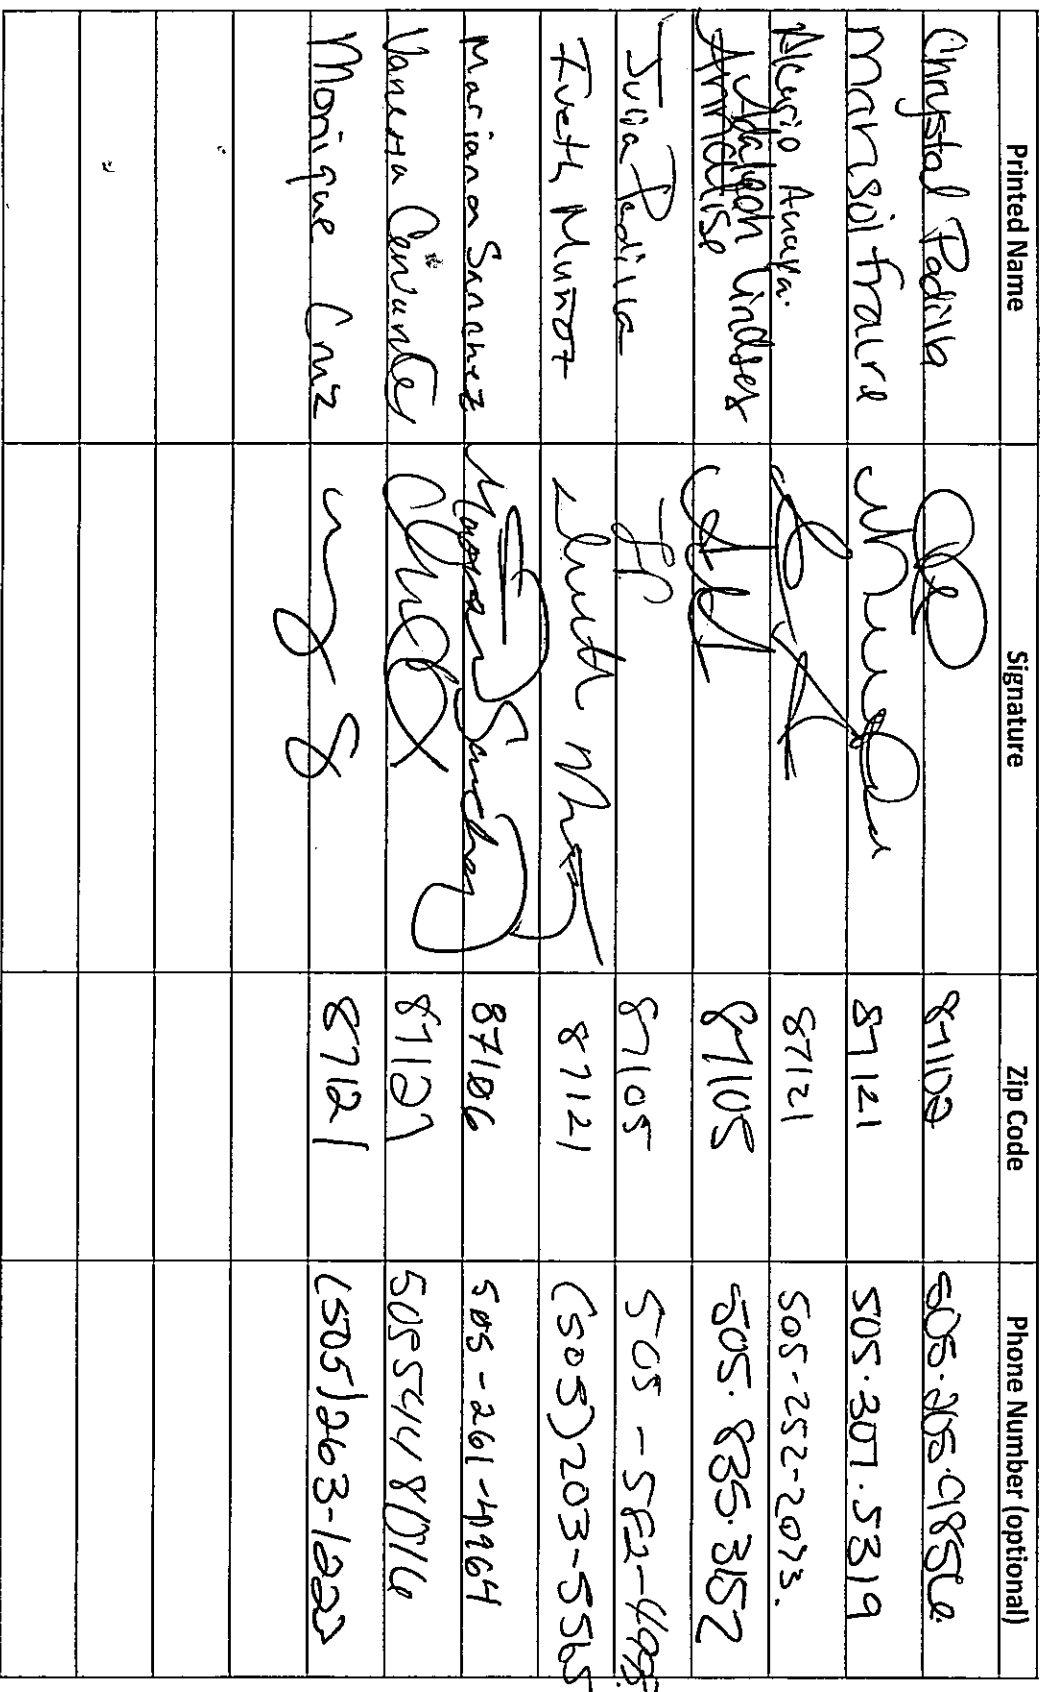 Printed Name Signature Zip Code Phone Number (optional)
Chrystal Padilla 87102 505.205.9856
Marisol Fraire 87121 505.307.5319
Alcario Anaya. 87121 505-252-2073.
87105 505.835.3152
Julia Padilla 87105 505-582-4995
Iveth Munoz 87121 (505)203-5565
Mariana Sanchez Mariana Sanchez 87106 505-261-4964
Vanessa Cervantes 87121 5055448076
Monique Cruz 87121 (505)263-1223